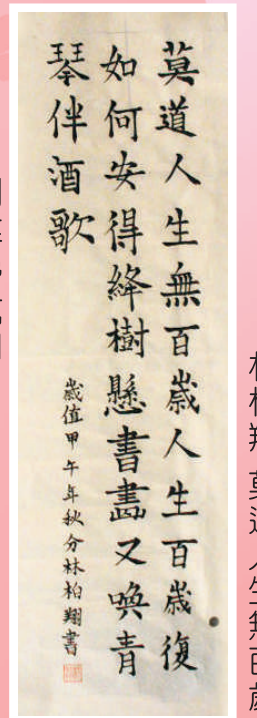 莫道人生無百歲人生百歲復
如何安得絳樹懸書畫又喚青
琴伴酒歌
歲值甲午年秋分林柏翔書